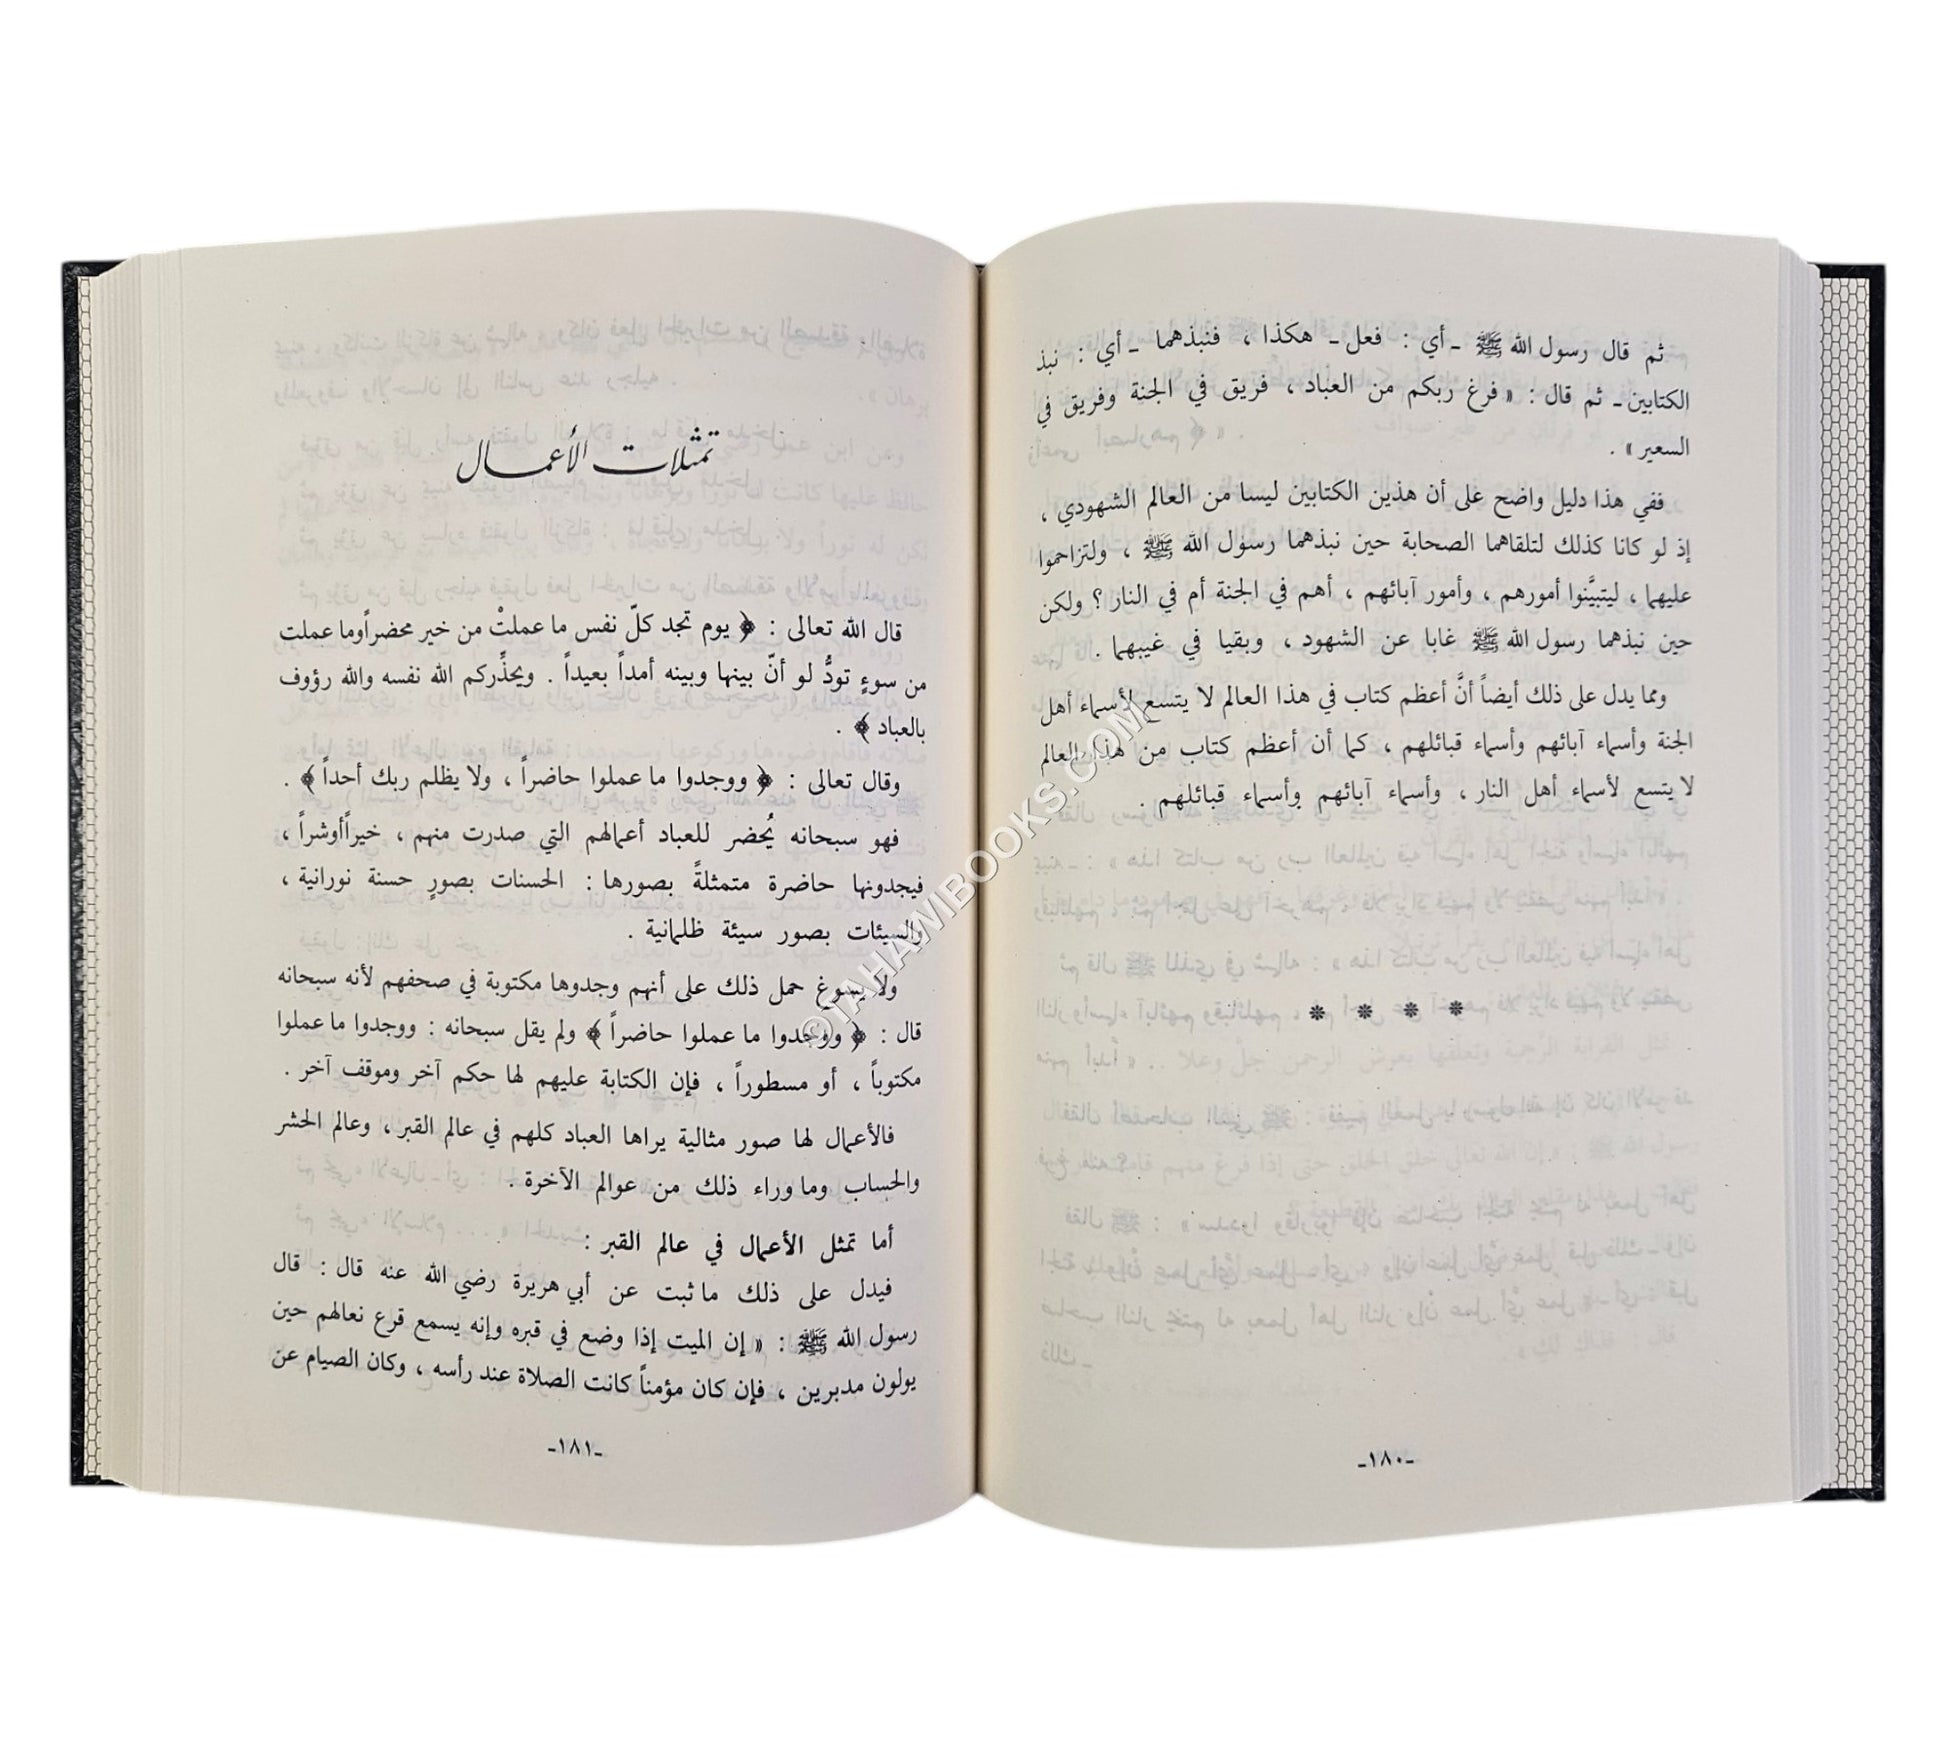 ثم قال رسول الله ﷺ ـ أي : فعل ـ هكذا ، فنبذهما ـ أي : نبذ
الكتابين ـ ثم قال : « فرغ ربكم من العباد ، فريق في الجنة وفريق في
السعير » .
ففي هذا دليل واضح على أن هذين الكتابين ليسا من العالم الشهودي ،
إذ لو كانا كذلك لتلقاهما الصحابة حين نبذهما رسول الله ﷺ ، ولتزاحموا
عليهما ، ليتبيَّنوا أمورهم ، وأمور آبائهم ، أهم في الجنة أم في النار ؟ ولكن
حين نبذهما رسول الله ﷺ غابا عن الشهود ، وبقيا في غيبهما .
ومما يدل على ذلك أيضاً أنَّ أعظم كتاب في هذا العالم لا يتسع لأسماء أهل
الجنة وأسماء آبائهم وأسماء قبائلهم ، كما أن أعظم كتاب من هذا العالم
لا يتسع لأسماء أهل النار ، وأسماء آبائهم وأسماء قبائلهم .
* * * *
ـ ١٨٠ ـ
تمثلات الأعمال
قال الله تعالى : ﴿ يوم تجد كلّ نفس ما عملتْ من خير محضراً وما عملت
من سوءٍ تودُّ لو أنّ بينها وبينه أمداً بعيداً . ويحذِّركم الله نفسه والله رؤوف
بالعباد ﴾ .
وقال تعالى : ﴿ ووجدوا ما عملوا حاضراً ، ولا يظلم ربك أحداً ﴾ .
فهو سبحانه يُحضر للعباد أعمالهم التي صدرت منهم ، خيراً أو شراً ،
فيجدونها حاضرة متمثلةً بصورها : الحسنات بصورٍ حسنة نورانية ،
والسيئات بصور سيئة ظلمانية .
ولا يسوغ حمل ذلك على أنهم وجدوها مكتوبة في صحفهم لأنه سبحانه
قال : ﴿ ووجدوا ما عملوا حاضراً ﴾ ولم يقل سبحانه : ووجدوا ما عملوا
مكتوباً ، أو مسطوراً ، فإن الكتابة عليهم لها حكم آخر وموقف آخر .
فالأعمال لها صور مثالية يراها العباد كلهم في عالم القبر ، وعالم الحشر
والحساب وما وراء ذلك من عوالم الآخرة .
أما تمثل الأعمال في عالم القبر :
فيدل على ذلك ما ثبت عن أبي هريرة رضي الله عنه قال : قال
رسول الله ﷺ : « إن الميت إذا وضع في قبره وإنه يسمع قرع نعالهم حين
يولون مدبرين ، فإن كان مؤمناً كانت الصلاة عند رأسه ، وكان الصيام عن
ـ ١٨١ ـ
©TAHAMIBOOKS.COM